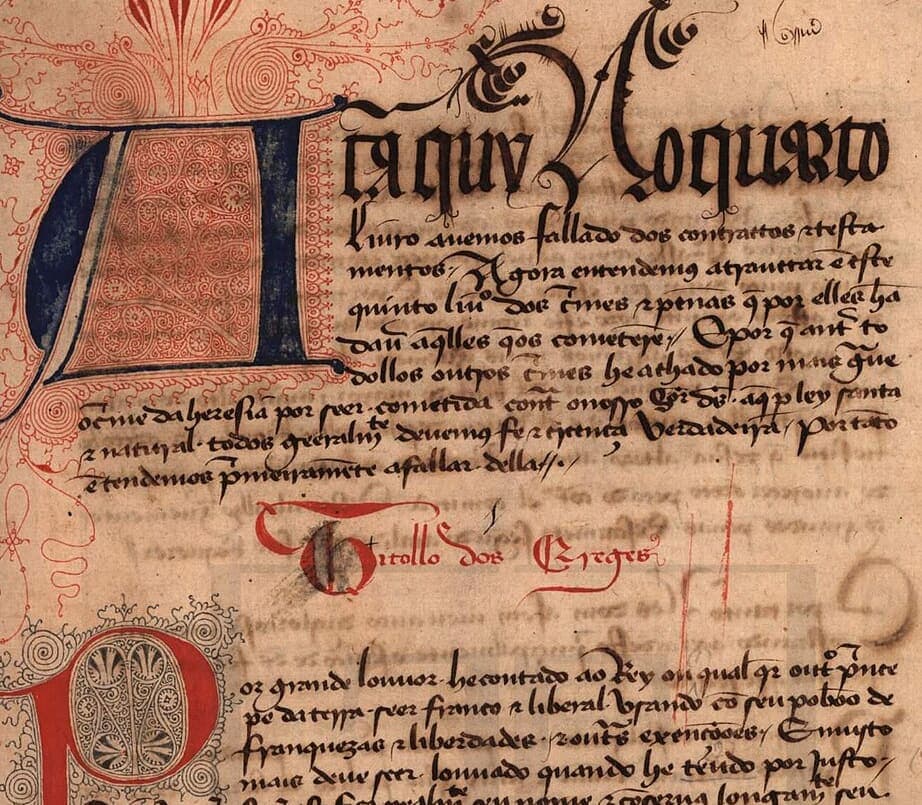 Ataquy No quarto
Liuro auemos fallado dos contrautos ⁊ testa
mentos. Agora entendemus atrauttar ē este
quinto liu.º dos c̃mes ⁊ penas q̃ por elles hã
dau aq̃lles q̃os cometerẽ. E por q̃ ant̃ to
dollos outros c̃mes he achado por mais g̃ue
o c̃me da heresia por seer cometida cont̃ o nosso Sñr ds. aq̃ p̱ ley santa
⁊ natural todos geeralmte deuemus fe ⁊ creença verdadeira. Por tãto
ētendemos p̃meiramēte afallar della.
Titollo dos Ereges
Por grande louuor he contado ao Rey ou qual q̃r out.º p̃nce
pe da terra seer franco ⁊ liberal. Vsando cõ seu poboo de
franquezas ⁊ liberdades ⁊ out̃s exençoões. E muyto
mais deue seer louuado quando he teudo por Justo